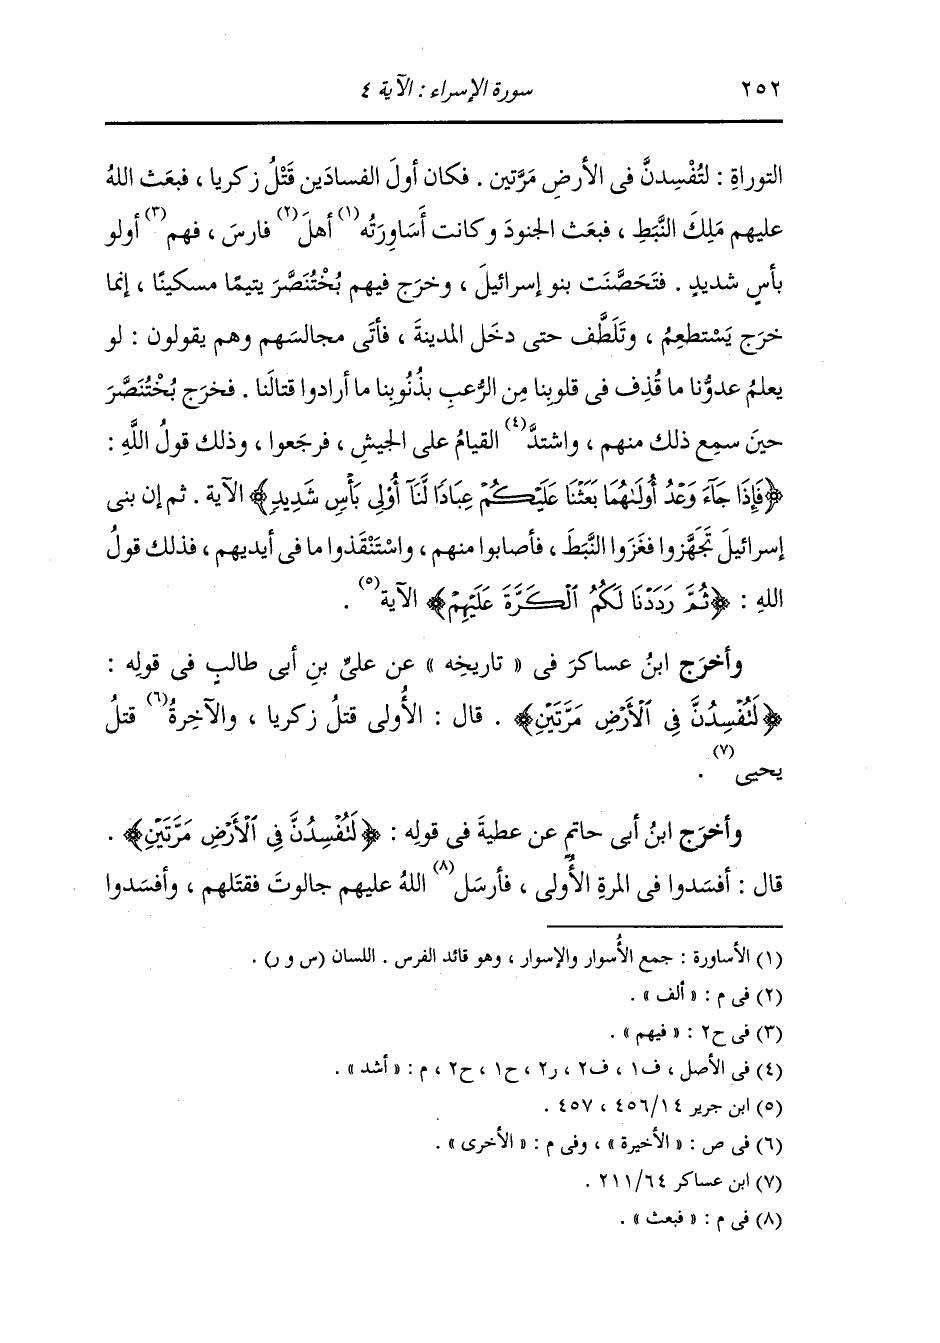 ٢٥٢ سورة الإسراء : الآية ٤
التوراةِ : لتُفْسِدنَّ فى الأرضِ مَرَّتين . فكان أولَ الفسادَين قَتْلُ زكريا ، فبعَث اللهُ
عليهم مَلِكَ النَّبَطِ ، فبعَث الجنودَ وكانت أَسَاوِرَتُه(١) أهلَ(٢) فارسَ ، فهم(٣) أولو
بأسٍ شديدٍ . فتَحَصَّنَت بنو إسرائيلَ ، وخرَج فيهم بُخْتُنَصَّرَ يتيمًا مسكينًا ، إنما
خرَج يَسْتطعِمُ ، وتَلَطَّف حتى دخَل المدينةَ ، فأتَى مجالسَهم وهم يقولون : لو
يعلمُ عدوُّنا ما قُذِف فى قلوبِنا مِن الرُّعبِ بذُنُوبِنا ما أرادوا قتالَنا . فخرَج بُخْتُنَصَّرَ
حينَ سمِع ذلك منهم ، واشتدَّ(٤) القيامُ على الجيشِ ، فرجَعوا ، وذلك قولُ اللَّهِ :
﴿فَإِذَا جَآءَ وَعْدُ أُولَىٰهُمَا بَعَثْنَا عَلَيْكُمْ عِبَادًا لَّنَآ أُوْلِى بَأْسٍ شَدِيدٍ﴾ الآية . ثم إن بنى
إسرائيلَ تَجَهَّزوا فغَزَوا النَّبَطَ ، فأصابوا منهم ، واسْتَنْقَذوا ما فى أيديهم ، فذلك قولُ
اللهِ : ﴿ثُمَّ رَدَدْنَا لَكُمُ ٱلْكَرَّةَ عَلَيْهِمْ﴾ الآية(٥) .
وأخرَج ابنُ عساكرَ فى « تاريخِه » عن علىِّ بنِ أبى طالبٍ فى قولِه :
﴿لَتُفْسِدُنَّ فِى ٱلْأَرْضِ مَرَّتَيْنِ﴾ . قال : الأُولى قتلُ زكريا ، والآخِرةُ(٦) قتلُ
يحيى(٧) .
وأخرَج ابنُ أبى حاتمٍ عن عطيةَ فى قولِه : ﴿لَتُفْسِدُنَّ فِى ٱلْأَرْضِ مَرَّتَيْنِ﴾ .
قال : أفسَدوا فى المرةِ الأُولى ، فأرسَل(٨) اللهُ عليهم جالوتَ فقتَلهم ، وأفسَدوا
(١) الأساورة : جمع الأُسوار والإسوار ، وهو قائد الفرس . اللسان (س و ر) .
(٢) فى م : « ألف » .
(٣) فى ح٢ : « فيهم » .
(٤) فى الأصل ، ف١ ، ف٢ ، ر٢ ، ح١ ، ح٢ ، م : « أشد » .
(٥) ابن جرير ١٤/٤٥٦ ، ٤٥٧ .
(٦) فى ص : « الأخيرة » ، وفى م : « الأخرى » .
(٧) ابن عساكر ٦٤/٢١١ .
(٨) فى م : « فبعث » .